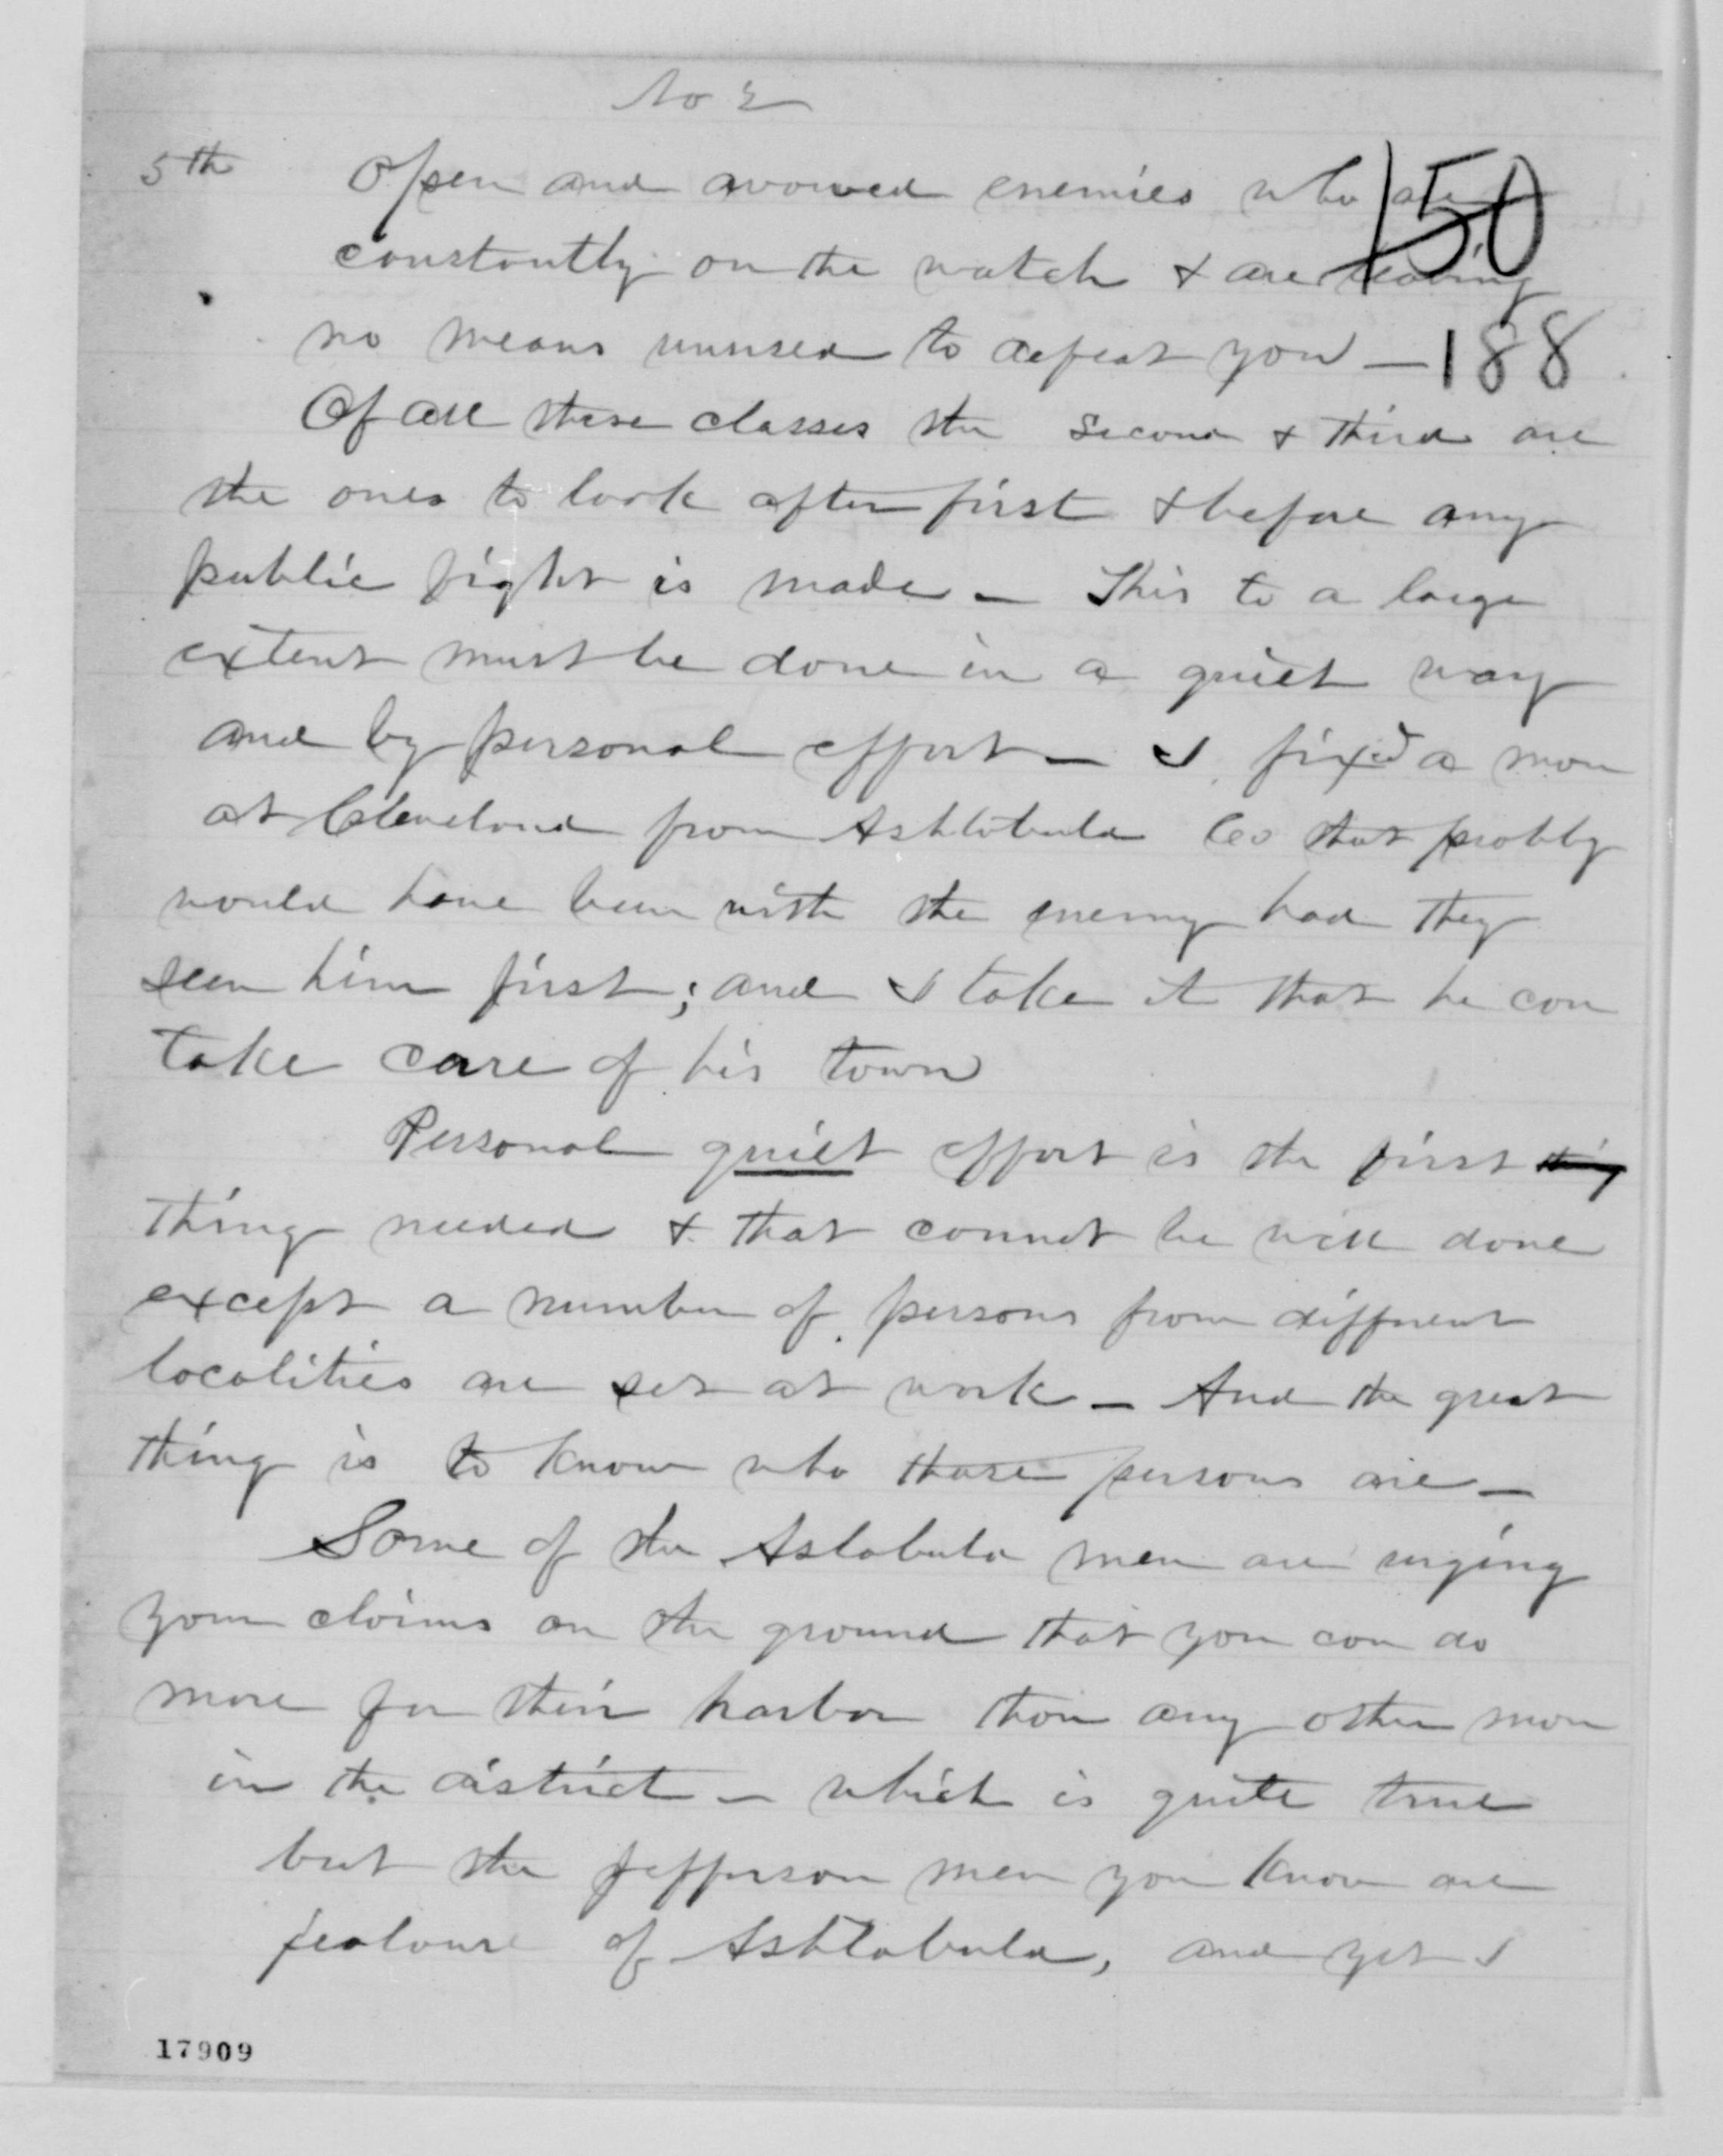 No 2
5th Open and avowed enemies who are
150
constantly on the watch & are leaving
no means unused to defeat you —
188
Of all these classes the second & third are
the ones to look after first & before any
public fight is made — This to a large
extent must be done in a quiet way
and by personal effort — I fixed a man
at Cleveland from Ashtabula Co that probbly
would have been with the enemy had they
seen him first; and I take it that he can
take care of his town
Personal quiet effort is the first thing
thing needed & that cannot be well done
except a number of persons from different
localities are set at work — And the great
thing is to know who those persons are —
Some of the Astabula men are urging
your claims on the ground that you can do
more for their harbor than any other man
in the district — which is quite true
but the Jefferson men you know are
jealouse of Ashtabula, and yet I
17909